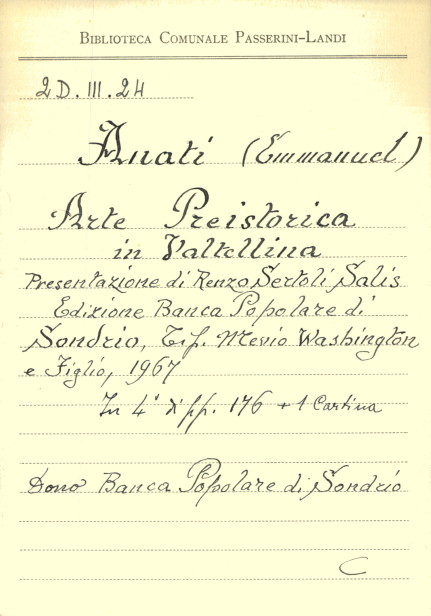 BIBLIOTECA COMUNALE PASSERINI-LANDI
2D.III.24
Anati (Emmanuel)
Arte Preistorica
in Valtellina
Presentazione di Renzo Sertoli Salis
Edizione Banca Popolare di
Sondrio, Tip. Mevio Washington
e Figlio, 1967
In 4° di pp. 176 + 1 Cartina
Dono Banca Popolare di Sondrio
C